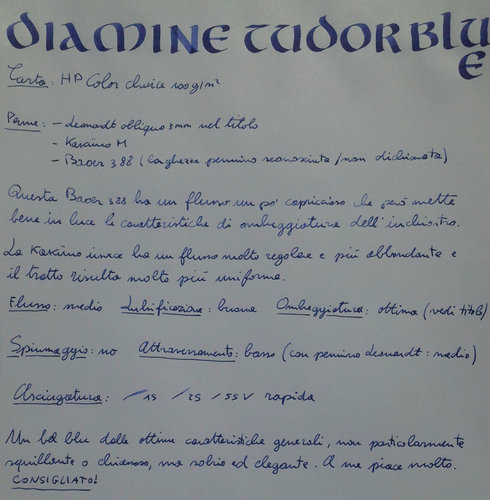 DIAMINE TUDOR BLUE
Carta: HP Color choice 100g/m²
Penne: - Leonardt obliquo 3mm nel titolo
- Kaküno M
- Baoer 388 (larghezza pennino sconosciuta/non dichiarata)
Questa Baoer 388 ha un flusso un po' capriccioso che però mette
bene in luce le caratteristiche di ombreggiatura dell'inchiostro.
La Kaküno invece ha un flusso molto regolare e più abbondante e
il tratto risulta molto più uniforme.
Flusso: medio Lubrificazione: buona Ombreggiatura: ottima (vedi titolo)
Spiumaggio: no Attraversamento: basso (con pennino Leonardt: medio)
Asciugatura: / 1s / 2s / 5s V rapida
Un bel blu dalle ottime caratteristiche generali, non particolarmente
squillante o chiassoso, ma sobrio ed elegante. A me piace molto.
CONSIGLIATO!